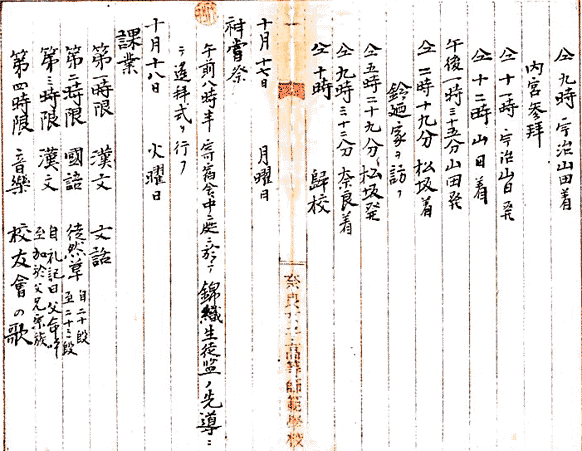 仝 九時 宇治山田着
内宮参拝
仝 十一時 宇治山田発
仝 十二時 山田着
午後一時三五分 山田発
仝 二時十九分 松坂着
鈴廼家ヲ訪フ
仝 五時二十九分 松坂発
仝 九時三十三分 奈良着
仝 十時 歸校
奈良女子高等師範學校
十月十七日 月曜日
神嘗祭
午前八時半 寄宿舎中庭ニ於テ 錦織生徒監ノ先導ニ
テ遥拝式ヲ行フ
十月十八日 火曜日
課業
第一時限 漢文 文話
第二時限 國語 徒然草 自二十段 至二十三段
第三時限 漢文 自礼記曰父命 至加於父兄宗族
第四時限 音樂 校友會の歌